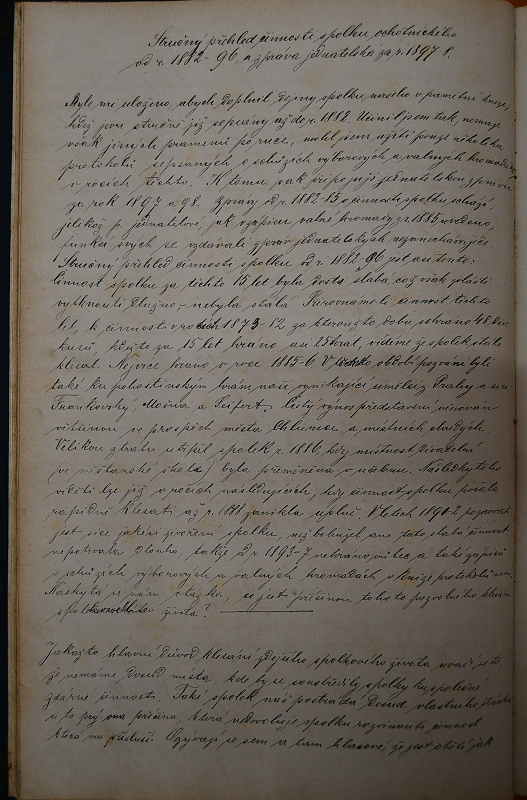 Stručný přehled činnosti spolku ochotnického
od r. 1882-96, a zpráva jednatelská za r. 1897-8.
Bylo mi uloženo, abych doplnil dějiny spolku našeho v pamětní knize,
když jsou stručně již sepsány až do r. 1882. Učinil jsem tak, nemaje
však jiných pramenů po ruce, mohl jsem užíti pouze několika
protokolů sepsaných o schůzích výborových a valných hromadách
v rocích těchto. K tomu pak připojuji jednatelskou zprávu
za rok 1897 a 98. Zprávy od r. 1882-85 o činnosti spolku schází,
jelikož p. jednatelové, jak v zápisu valné hromady z r. 1885 uvedeno,
funkcí svých se vzdávali zpráv jednatelských
Stručný přehled činnosti spolku od r. 1882-96 jest asi tento:
Činnost spolku za těchto 15 let byla dosti slabá což však zvláště
vytknouti dlužno - nebyla stálá. Porovnáme-li činnost těchto
let, k činnosti v rocích 1873-82 za kteroužto dobu sehráno 48 div.
kusů, kdežto za 15 let hráno asi 25krát, vidíme že spolek stále
klesal. Nejvíce hráno v roce 1885-6. V období pozváni byli
také ku pohostinským hrám naši vynikající umělci z Prahy a sice
Frankovský, Mošna a Seifert. Čistý výnos představení věnován
většinou ve prospěch města Chlumce a místních chudých.
Velikou ztrátu utrpěl spolek r. 1886, kdy místnost divadelní
(ve měšťanské škole) byla přeměněna v učebnu. Následky toho
viděti lze již v rocích následujících, kdy činnost spolku počala
rapidně klesati až r. zanikla úplně. V letech 1890-2 pozorovati
jest sice jakési oživení spolku, než bohužel ani tato slabá činnost
nepotrvala dlouho, takže od r. 1893-7 nehráno vůbec a také zápisů
o schůzích výborových a valných hromadách v knize protokolů není.
Naskytá se nám otázka, co jest příčinou tohoto pozvolného klesání
spolkového života?
Jakožto hlavní důvod klesání zdejšího spolkového života uvésti jest to,
že nemáme dosud místa, kde by se soustředily spolky ku společné
zdárné činnosti. Také spolek náš postrádá dosud vlastního
a to prý ona příčina, která nedovoluje spolku rozvinouti činnost
která mu přísluší. Ozývají se sem a tam hlasové, že jest obětí jak